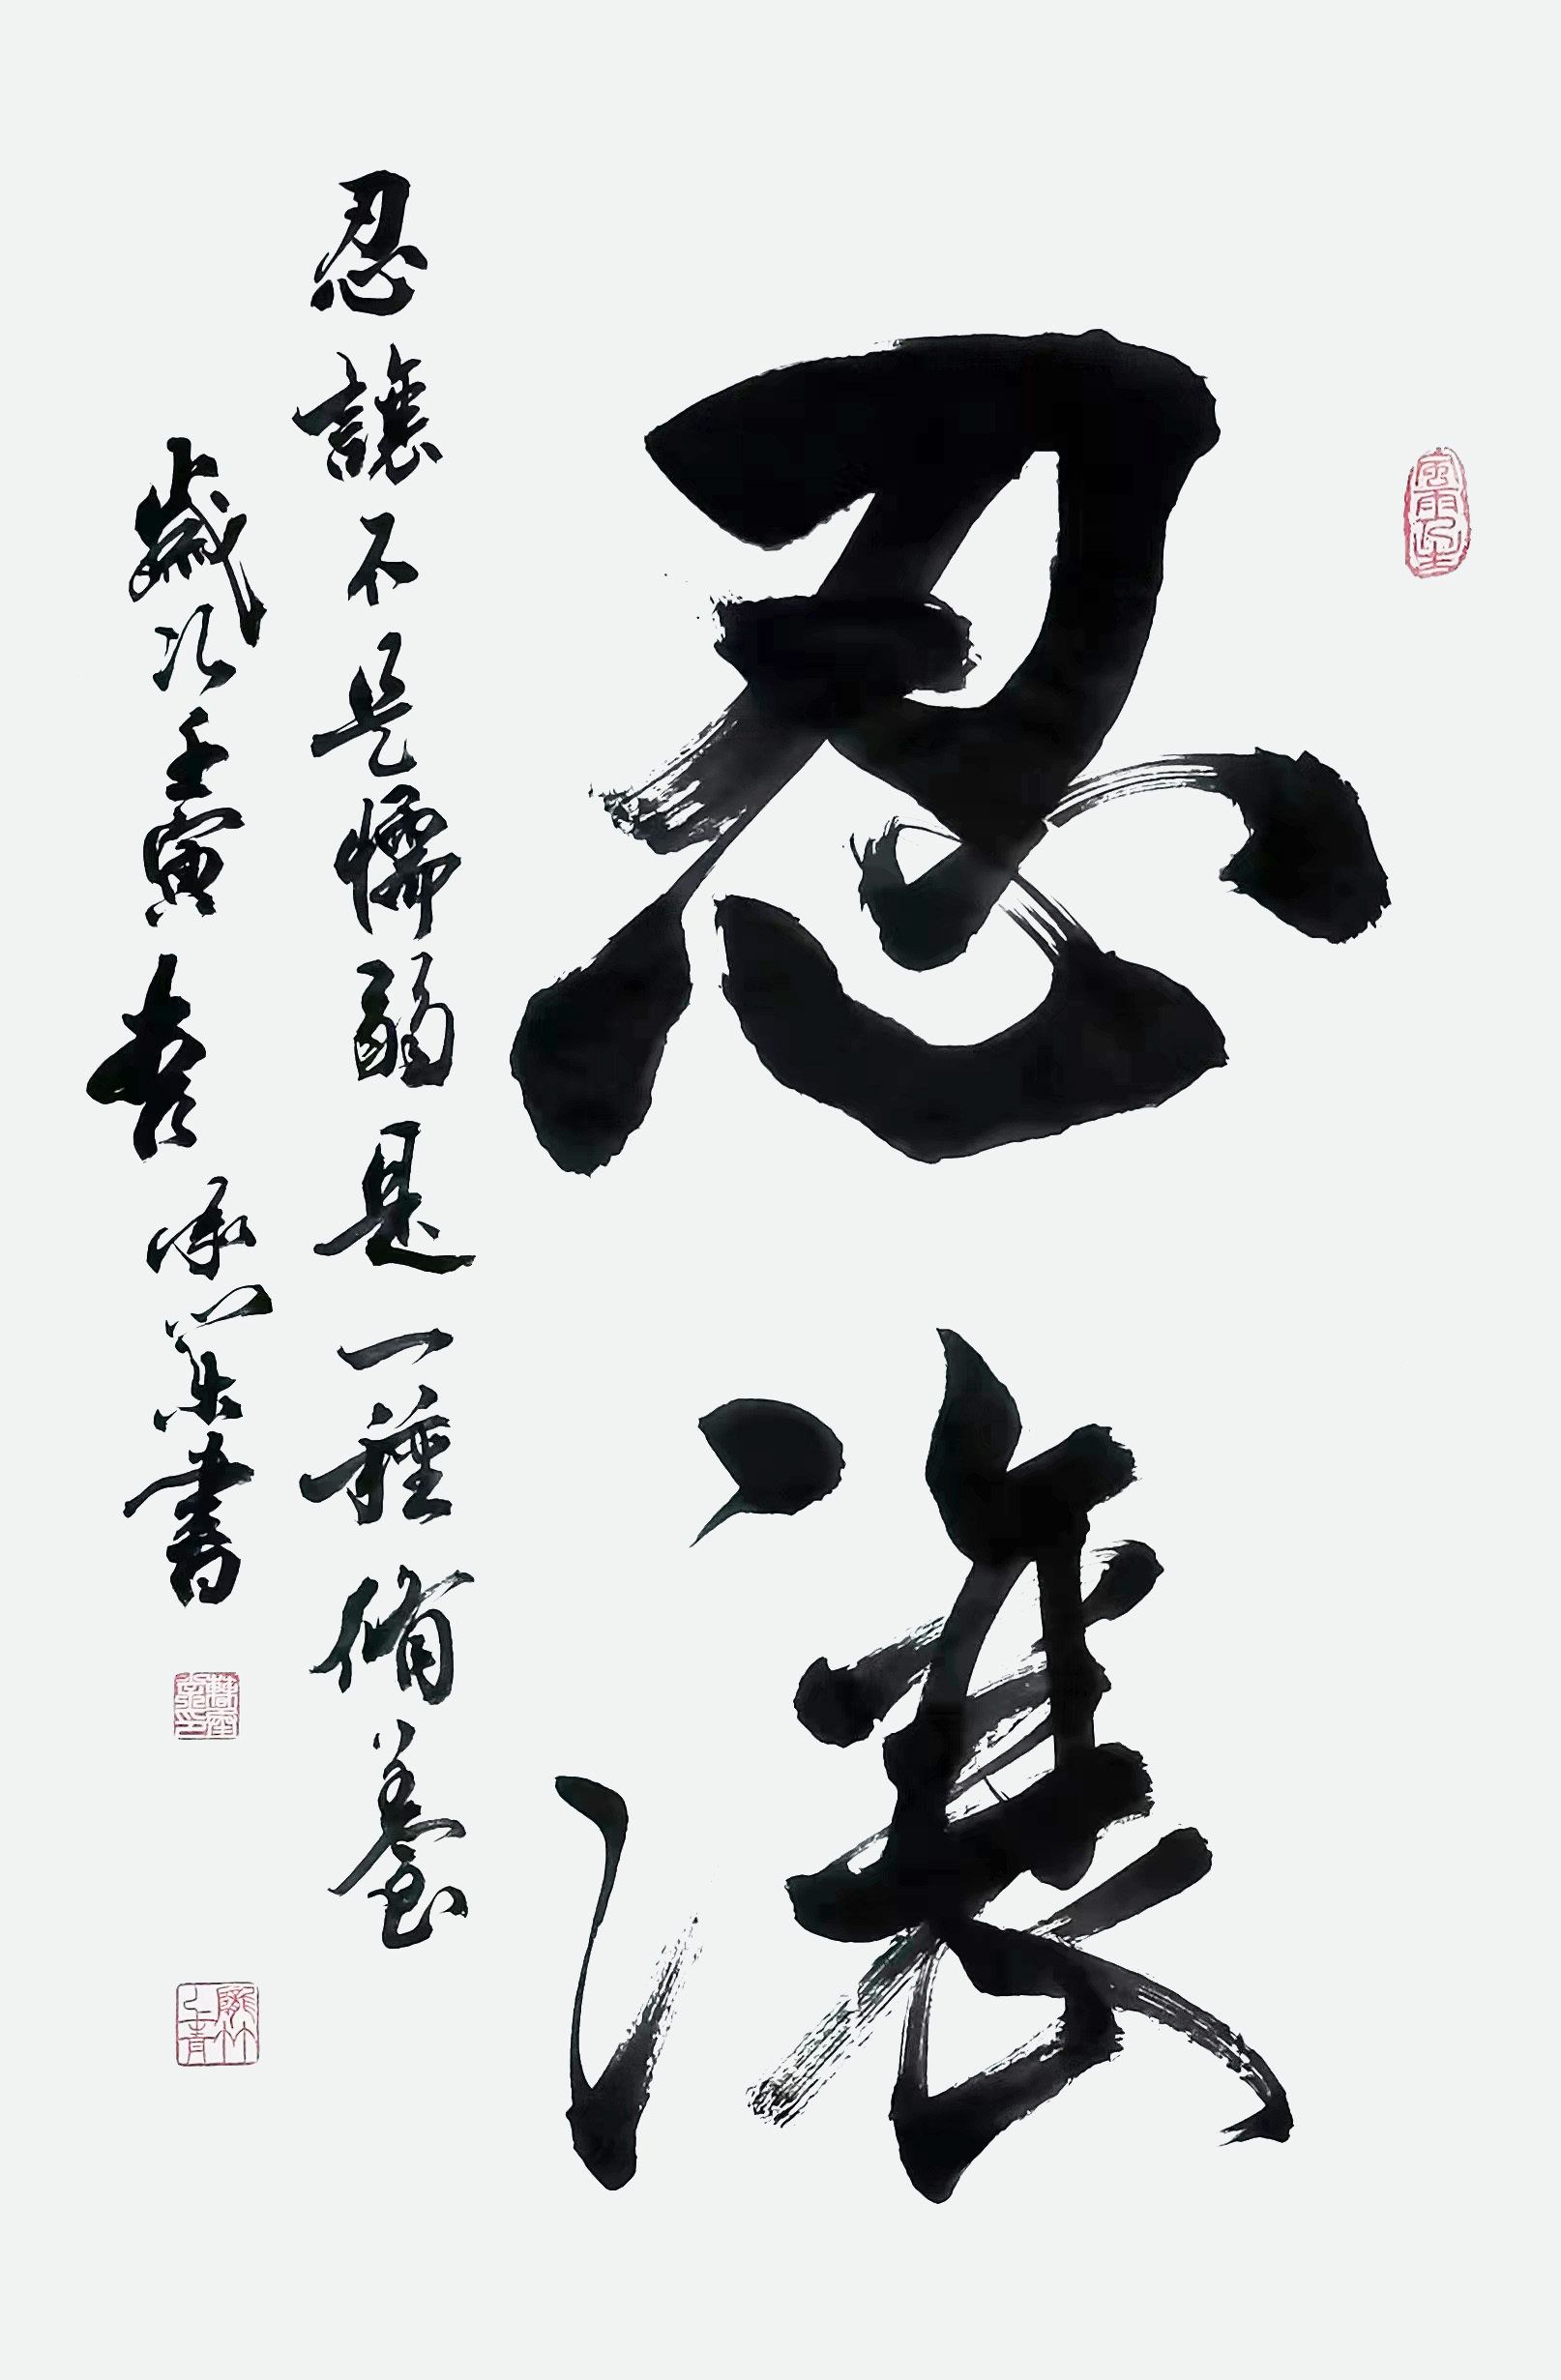 忍讓
忍讓不是懦弱是一種脩養
歲次壬寅春承業書